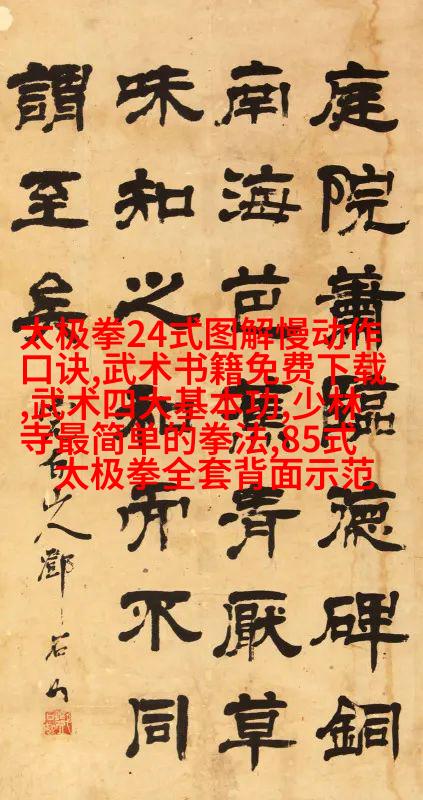 太极拳24式图解慢动作
口诀,武术书籍免费下载
,武术四大基本功,少林
寺最简单的拳法,85式
太极拳全套背面示范
庭院蕭臨德碑銅
南海芭蕉厭草
味知之而不同
謂至矣
山人鄧石如